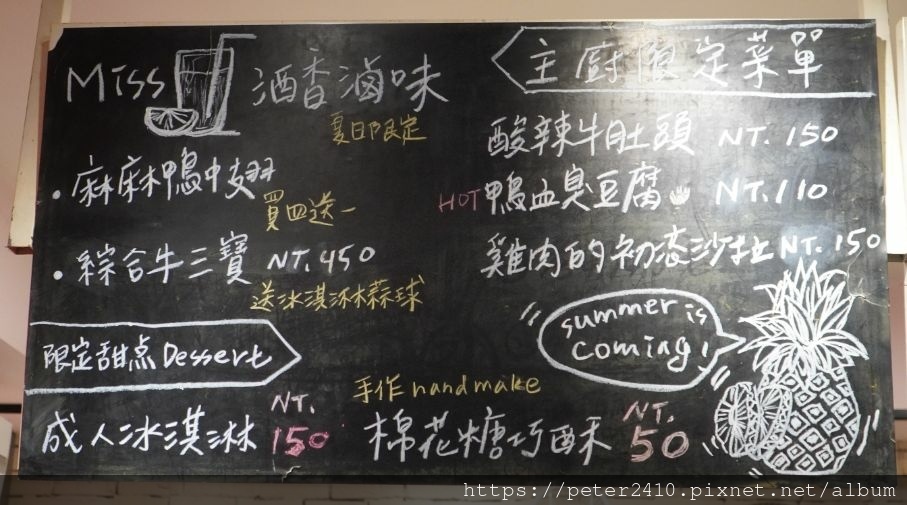 Miss 酒香滷味
夏日限定
·麻麻鴨中翅
買四送一
·綜合牛三寶 NT.450
送冰淇淋蒜球
主廚限定菜單
酸辣牛肚頭 NT.150
HOT 鴨血臭豆腐 NT.110
雞肉的初恋沙拉 NT.150
summer is
coming!
限定甜点 Dessert
成人冰淇淋 NT.150
手作 handmake
棉花糖巧酥 NT.50
https://peter2410.pixnet.net/album